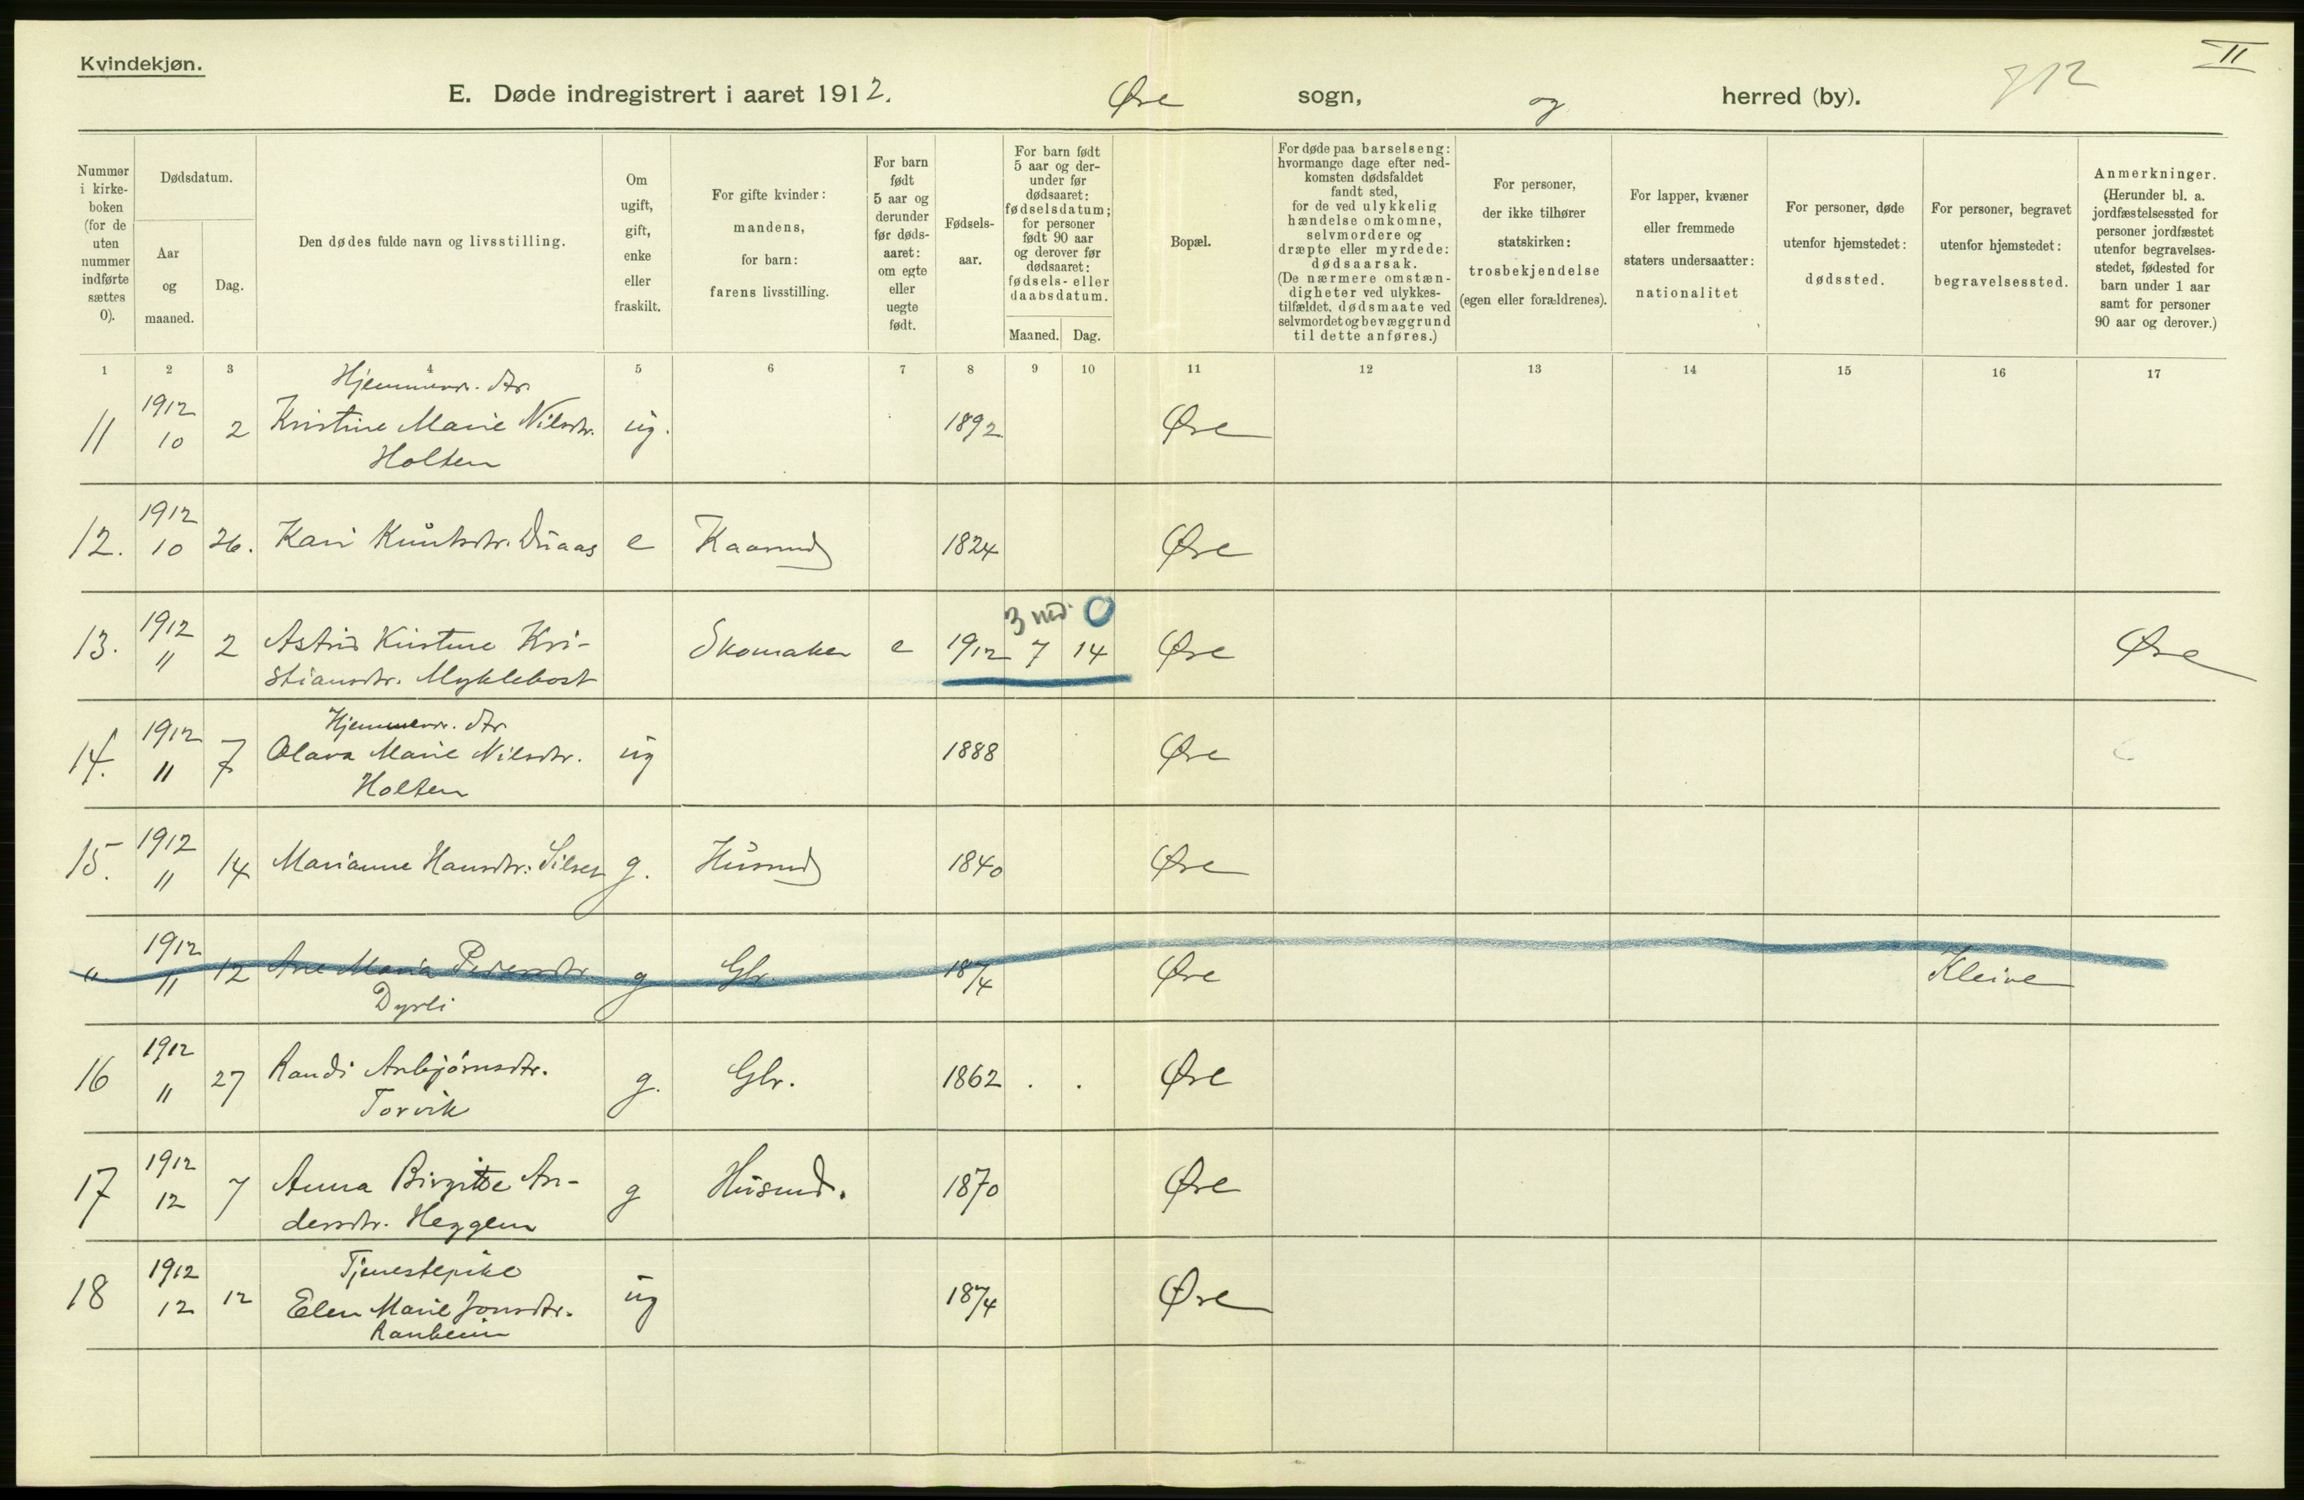 Kvindekjøn.
II
E. Døde indregistrert i aaret 1912. Øre sogn, og herred (by). 712
Nummer i kirkeboken (for de uten nummer indførte sættes 0).
Dødsdatum.
Aar og maaned.
Dag.
Den dødes fulde navn og livsstilling.
Om ugift, gift, enke eller fraskilt.
For gifte kvinder: mandens, for barn: farens livsstilling.
For barn født 5 aar og derunder før dødsaaret: om egte eller uegte født.
Fødselsaar.
For barn født 5 aar og derunder før dødsaaret: fødselsdatum; for personer født 90 aar og derover før dødsaaret: fødsels- eller daabsdatum.
Maaned. Dag.
Bopæl.
For døde paa barselseng: hvormange dage efter nedkomsten dødsfaldet fandt sted, for de ved ulykkelig hændelse omkomne, selvmordere og dræpte eller myrdede: dødsaarsak. (De nærmere omstændigheter ved ulykkestilfældet, dødsmaate ved selvmordet og bevæggrund til dette anføres.)
For personer, der ikke tilhører statskirken: trosbekjendelse (egen eller forældrenes).
For lapper, kvæner eller fremmede staters undersaatter: nationalitet
For personer, døde utenfor hjemstedet: dødssted.
For personer, begravet utenfor hjemstedet: begravelsessted.
Anmerkninger. (Herunder bl. a. jordfæstelsessted for personer jordfæstet utenfor begravelsesstedet, fødested for barn under 1 aar samt for personer 90 aar og derover.)
1 2 3 4 5 6 7 8 9 10 11 12 13 14 15 16 17
Hjemmevr. dtr.
11 1912 10 2 Kristine Marie Nilsdtr. ug. 1892 Øre
Holten
12. 1912 10 26. Kari Knutsdtr. Duaas e Kaarmd 1824 Øre
3 md. O
13. 1912 11 2 Astrid Kristine Kri- Skomaker e 1912 7 14 Øre Øre
stiansdtr. Myklebost
Hjemmevr. dtr.
14. 1912 11 7 Olava Marie Nilsdtr. ug 1888 Øre
Holten
15. 1912 11 14 Marianne Hansdtr. Silset g. Husmd 1840 Øre
" 1912 11 12 Ane Maria Pedersdtr. g Gbr. 1874 Øre Kleive
Dyrli
16 1912 11 27 Randi Anbjørnsdtr. g. Gbr. 1862 . . Øre
Torvik
17 1912 12 7 Anna Birgitte An- g Husmd. 1870 Øre
dersdtr. Heggem
Tjenestepike
18 1912 12 12 Elen Marie Jonsdtr. ug 1874 Øre
Ranheim